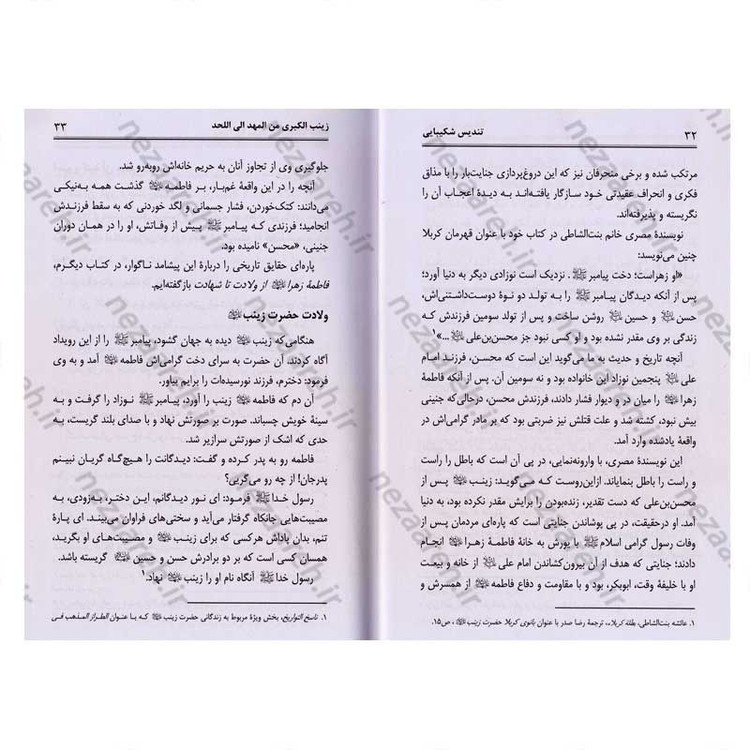 ۳۲
تندیس شکیبایی
مرتکب شده و برخی منحرفان نیز که این دروغ‌پردازی جنایت‌بار را با مذاق
فکری و انحراف عقیدتی خود سازگار یافته‌اند به دیدهٔ اعجاب آن را
نگریسته و پذیرفته‌اند.
نویسندهٔ مصری خانم بنت‌الشاطی در کتاب خود با عنوان قهرمان کربلا
چنین می‌نویسد:
«او زهراست؛ دخت پیامبر ﷺ. نزدیک است نوزادی دیگر به دنیا آورد؛
پس از آنکه دیدگان پیامبر ﷺ را به تولد دو نوهٔ دوست‌داشتنی‌اش،
حسن و حسین روشن ساخت و پس از تولد سومین فرزندش که
زندگی بر وی مقدر نشده بود و او کسی نبود جز محسن‌بن‌علی ...»¹
آنچه تاریخ و حدیث به ما می‌گوید این است که محسن، فرزند امام
علی پنجمین نوزاد این خانواده بود و نه سومین آن. پس از آنکه فاطمهٔ
زهرا را میان در و دیوار فشار دادند، فرزندش محسن، درحالی‌که جنینی
بیش نبود، کشته شد و علت قتلش نیز ضربتی بود که بر مادر گرامی‌اش در
واقعهٔ یادشده وارد آمد.
این نویسندهٔ مصری، با وارونه‌نمایی، در پی آن است که باطل را راست
و راست را باطل بنمایاند. ازاین‌روست که می‌گوید: زینب پس از
محسن‌بن‌علی که دست تقدیر، زنده‌بودن را برایش مقدر نکرده بود، به دنیا
آمد. او درحقیقت، در پی پوشاندن جنایتی است که پاره‌ای مردمان پس از
وفات رسول گرامی اسلام ﷺ با یورش به خانهٔ فاطمهٔ زهرا انجام
دادند؛ جنایتی که هدف از آن بیرون‌کشاندن امام علی از خانه و بیعت
او با خلیفهٔ وقت، ابوبکر، بود و با مقاومت و دفاع فاطمه از همسرش و
۱. عائشه بنت‌الشاطی، بطلة کربلاء، ترجمهٔ رضا صدر با عنوان بانوی کربلا حضرت زینب، ص۱۵.
زینب الکبری من المهد الی اللحد
۳۳
جلوگیری وی از تجاوز آنان به حریم خانه‌اش روبه‌رو شد.
آنچه را در این واقعهٔ غم‌بار، بر فاطمه گذشت همه به‌نیکی
می‌دانند: کتک‌خوردن، فشار جسمانی و لگد خوردنی که به سقط فرزندش
انجامید؛ فرزندی که پیامبر ﷺ پیش از وفاتش، او را در همان دوران
جنینی، «محسن» نامیده بود.
پاره‌ای حقایق تاریخی را دربارهٔ این پیشامد ناگوار، در کتاب دیگرم،
فاطمهٔ زهرا از ولادت تا شهادت بازگفته‌ایم.
ولادت حضرت زینب
هنگامی‌که زینب دیده به جهان گشود، پیامبر ﷺ را از این رویداد
آگاه کردند. آن حضرت به سرای دخت گرامی‌اش فاطمه آمد و به وی
فرمود: دخترم، فرزند نورسیده‌ات را برایم بیاور.
آن دم که فاطمه زینب را آورد، پیامبر ﷺ نوزاد را گرفت و به
سینهٔ خویش چسباند. صورت بر صورتش نهاد و با صدای بلند گریست، به
حدی که اشک از صورتش سرازیر شد.
فاطمه رو به پدر کرده و گفت: دیدگانت را هیچ‌گاه گریان نبینم
پدرجان! از چه رو می‌گریی؟
رسول خدا ﷺ فرمود: ای نور دیدگانم، این دختر، به‌زودی، به
مصیبت‌هایی جانکاه گرفتار می‌آید و سختی‌های فراوان می‌بیند. ای پارهٔ
تنم، بدان پاداش هرکسی که برای زینب و مصیبت‌های او بگرید،
همسان کسی است که بر دو برادرش حسن و حسین گریسته باشد.
رسول خدا ﷺ آنگاه نام او را زینب نهاد.¹
۱. ناسخ التواریخ، بخش ویژهٔ مربوط به زندگانی حضرت زینب که با عنوان الطراز المذهب فی
nezaareh.ir